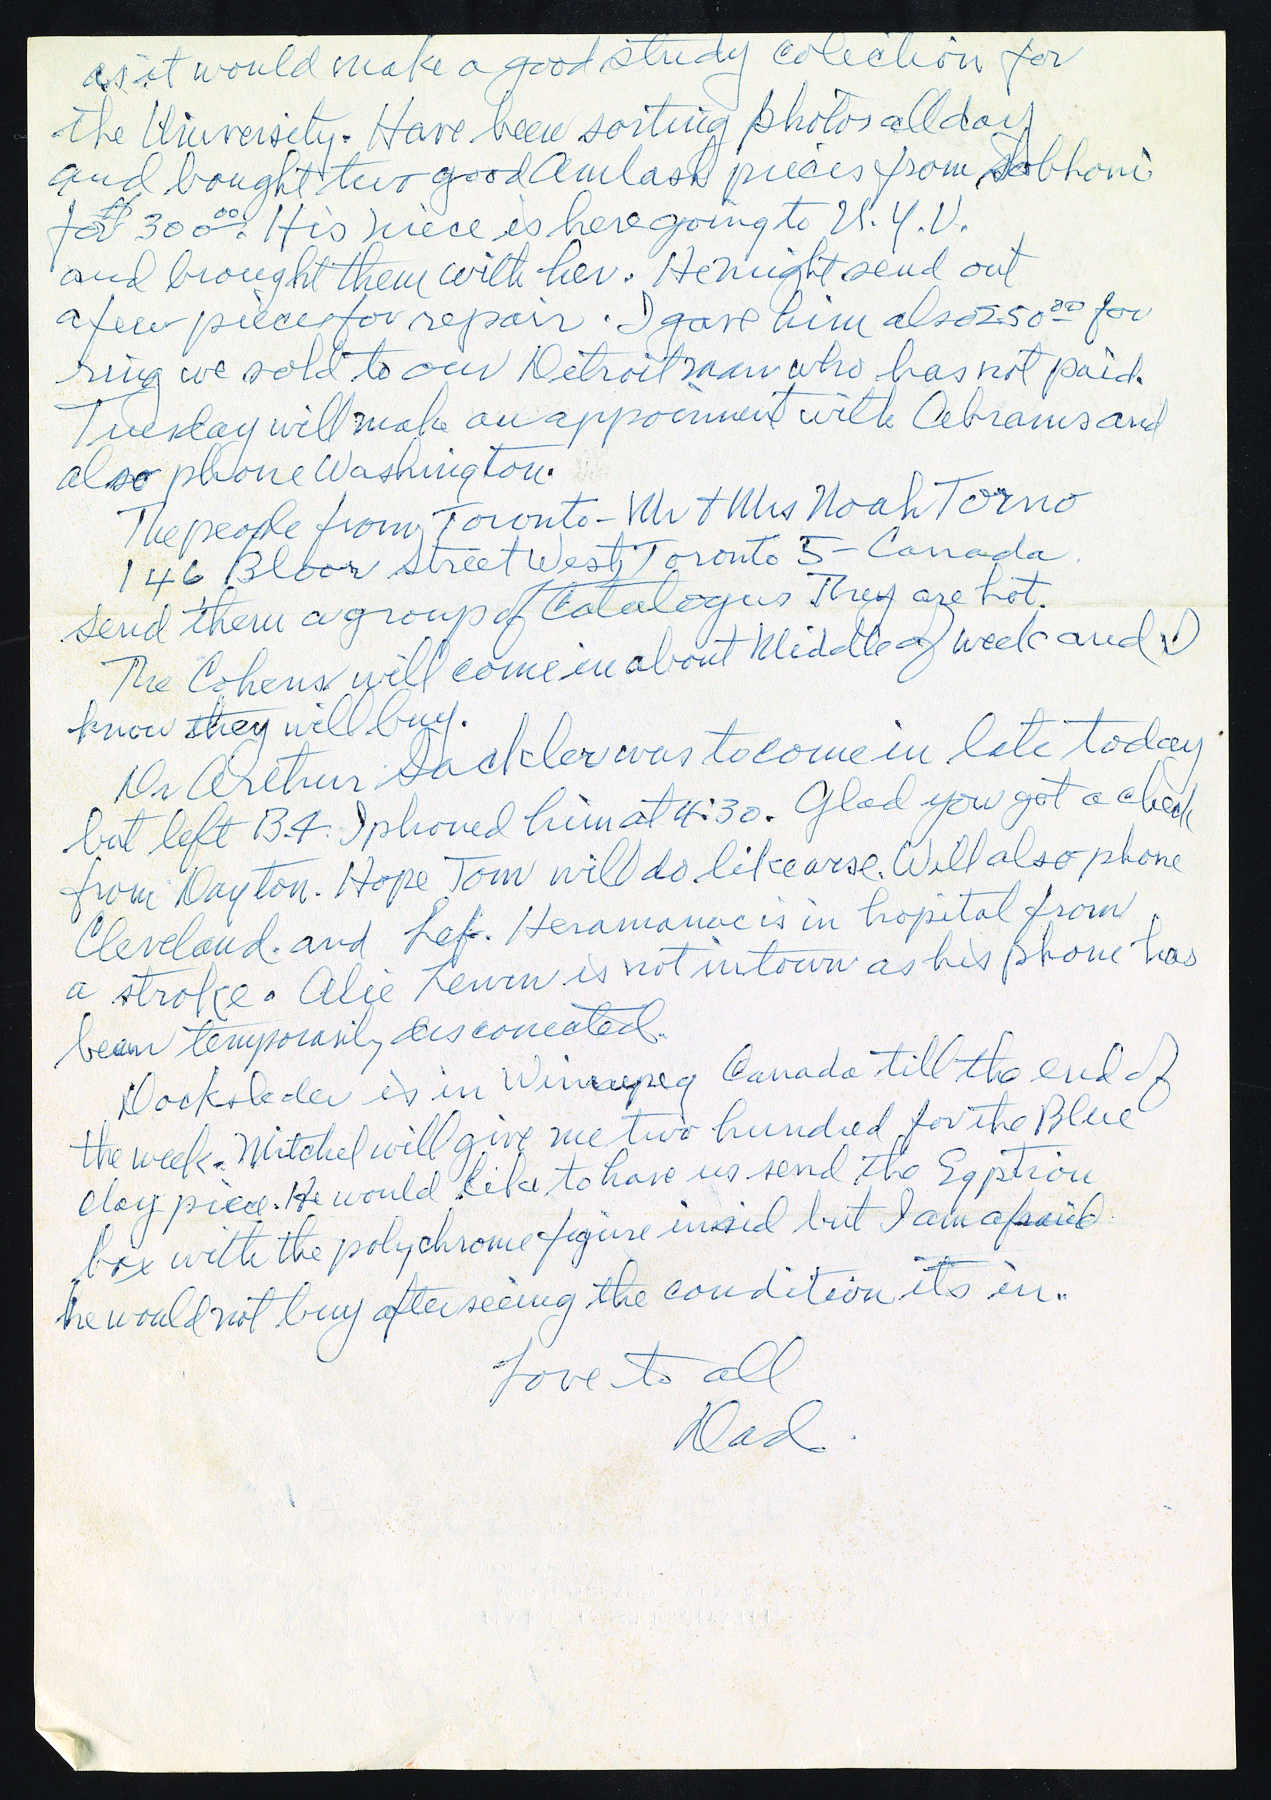 as it would make a good study colection for
the University. Have been sorting photos all day
and bought two good Amlash pieces from Sobhoni
for $300.00. His niece is here going to N.Y.U.
and brought them with her. He might send out
a few pieces for repair. I gave him also 250.00 for
ring we sold to our Detroit man who has not paid.
Tuesday will make an appoinment with Abrams and
also phone Washington.
The people from Toronto - Mr & Mrs Noah Torno
146 Bloor Street West, Toronto 5 - Canada.
send them a group of Catalogus They are hot.
The Cohens will come in about Middle of week and I
know they will buy.
Dr Arthur Sackler was to come in late today
but left B.4. I phoned him at 4:30. Glad you got a check
from Dayton. Hope Tom will do likewise. Will also phone
Cleveland. and Lef. Heramanec is in hopital from
a stroke. Alie is not in town as his phone has
been temporarily disconeated.
Dockstader is in Winnepeg Canada till the end of
the week. Mitchel will give me two hundred for the Blue
clay piece. He would like to have us send the Egption
box with the polychrome figure insid but I am afraid
he would not buy after seeing the condition its in..
Love to all
Dad.